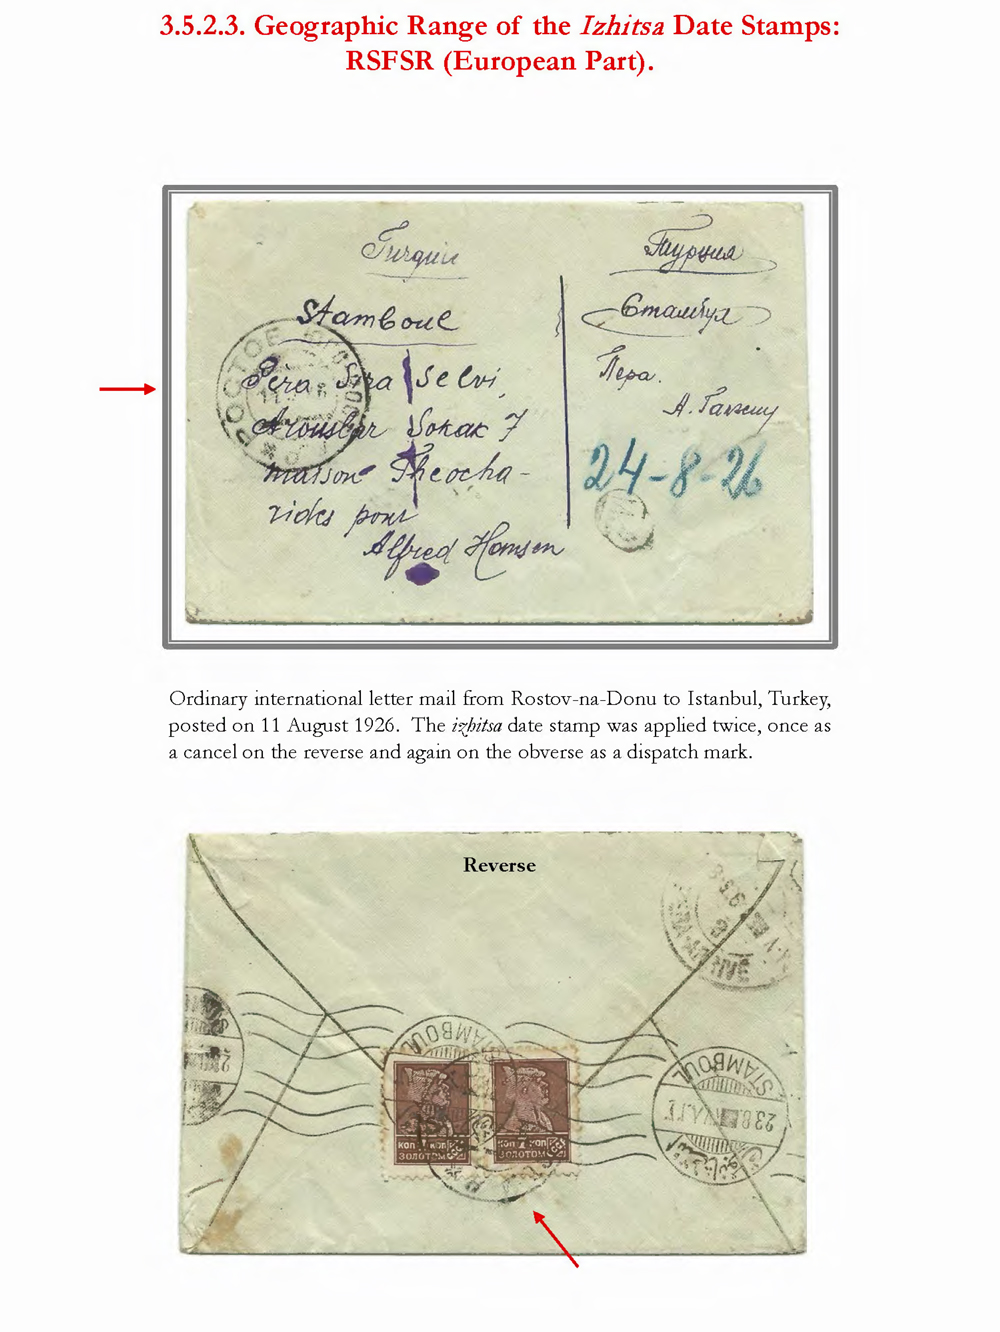 3.5.2.3. Geographic Range of the Izhitsa Date Stamps:
RSFSR (European Part).
Turquie
Stamboul
Pera Sira Selvi,
Arouslar Sokak 7
maison Theocha-
rides pour
Alfred Hansen
Турция
Стамбул
Пера.
А. Ганзену
24-8-26
РОСТОВ
Ordinary international letter mail from Rostov-na-Donu to Istanbul, Turkey,
posted on 11 August 1926. The izhitsa date stamp was applied twice, once as
a cancel on the reverse and again on the obverse as a dispatch mark.
Reverse
STAMBOUL
7 КОП 7 КОП
ЗОЛОТОМ ЗОЛОТОМ
STAMBOUL
23.8